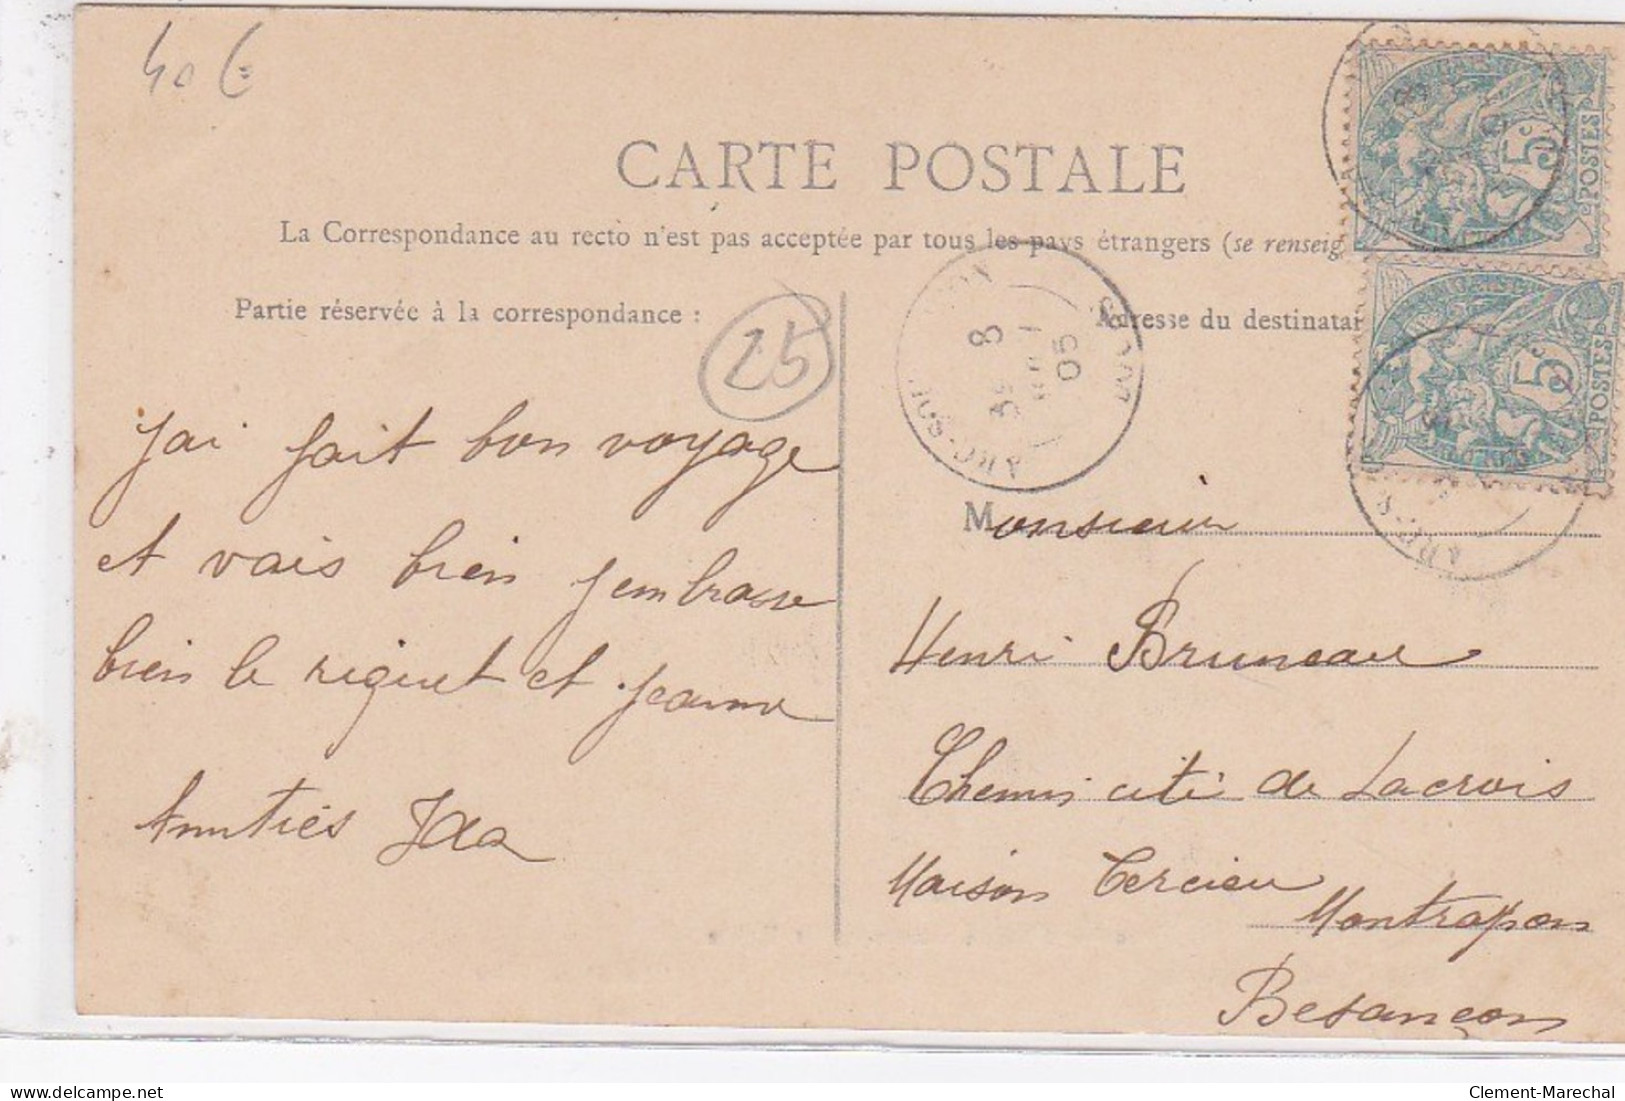 40 €
CARTE POSTALE
La Correspondance au recto n'est pas acceptée par tous les pays étrangers (se renseig
Partie réservée à la correspondance :
25
Adresse du destinatai
5c
POSTES
5c
POSTES
8
05
ARC-
j'ai fait bon voyage
et vais bien j'embrasse
bien le riquet et jeanne
Amitiés Ida
Monsieur
Henri Bruneau
Chemin cité de Lacroix
Maison Tercieu
Montrapon
Besançon
Clement-Marechal